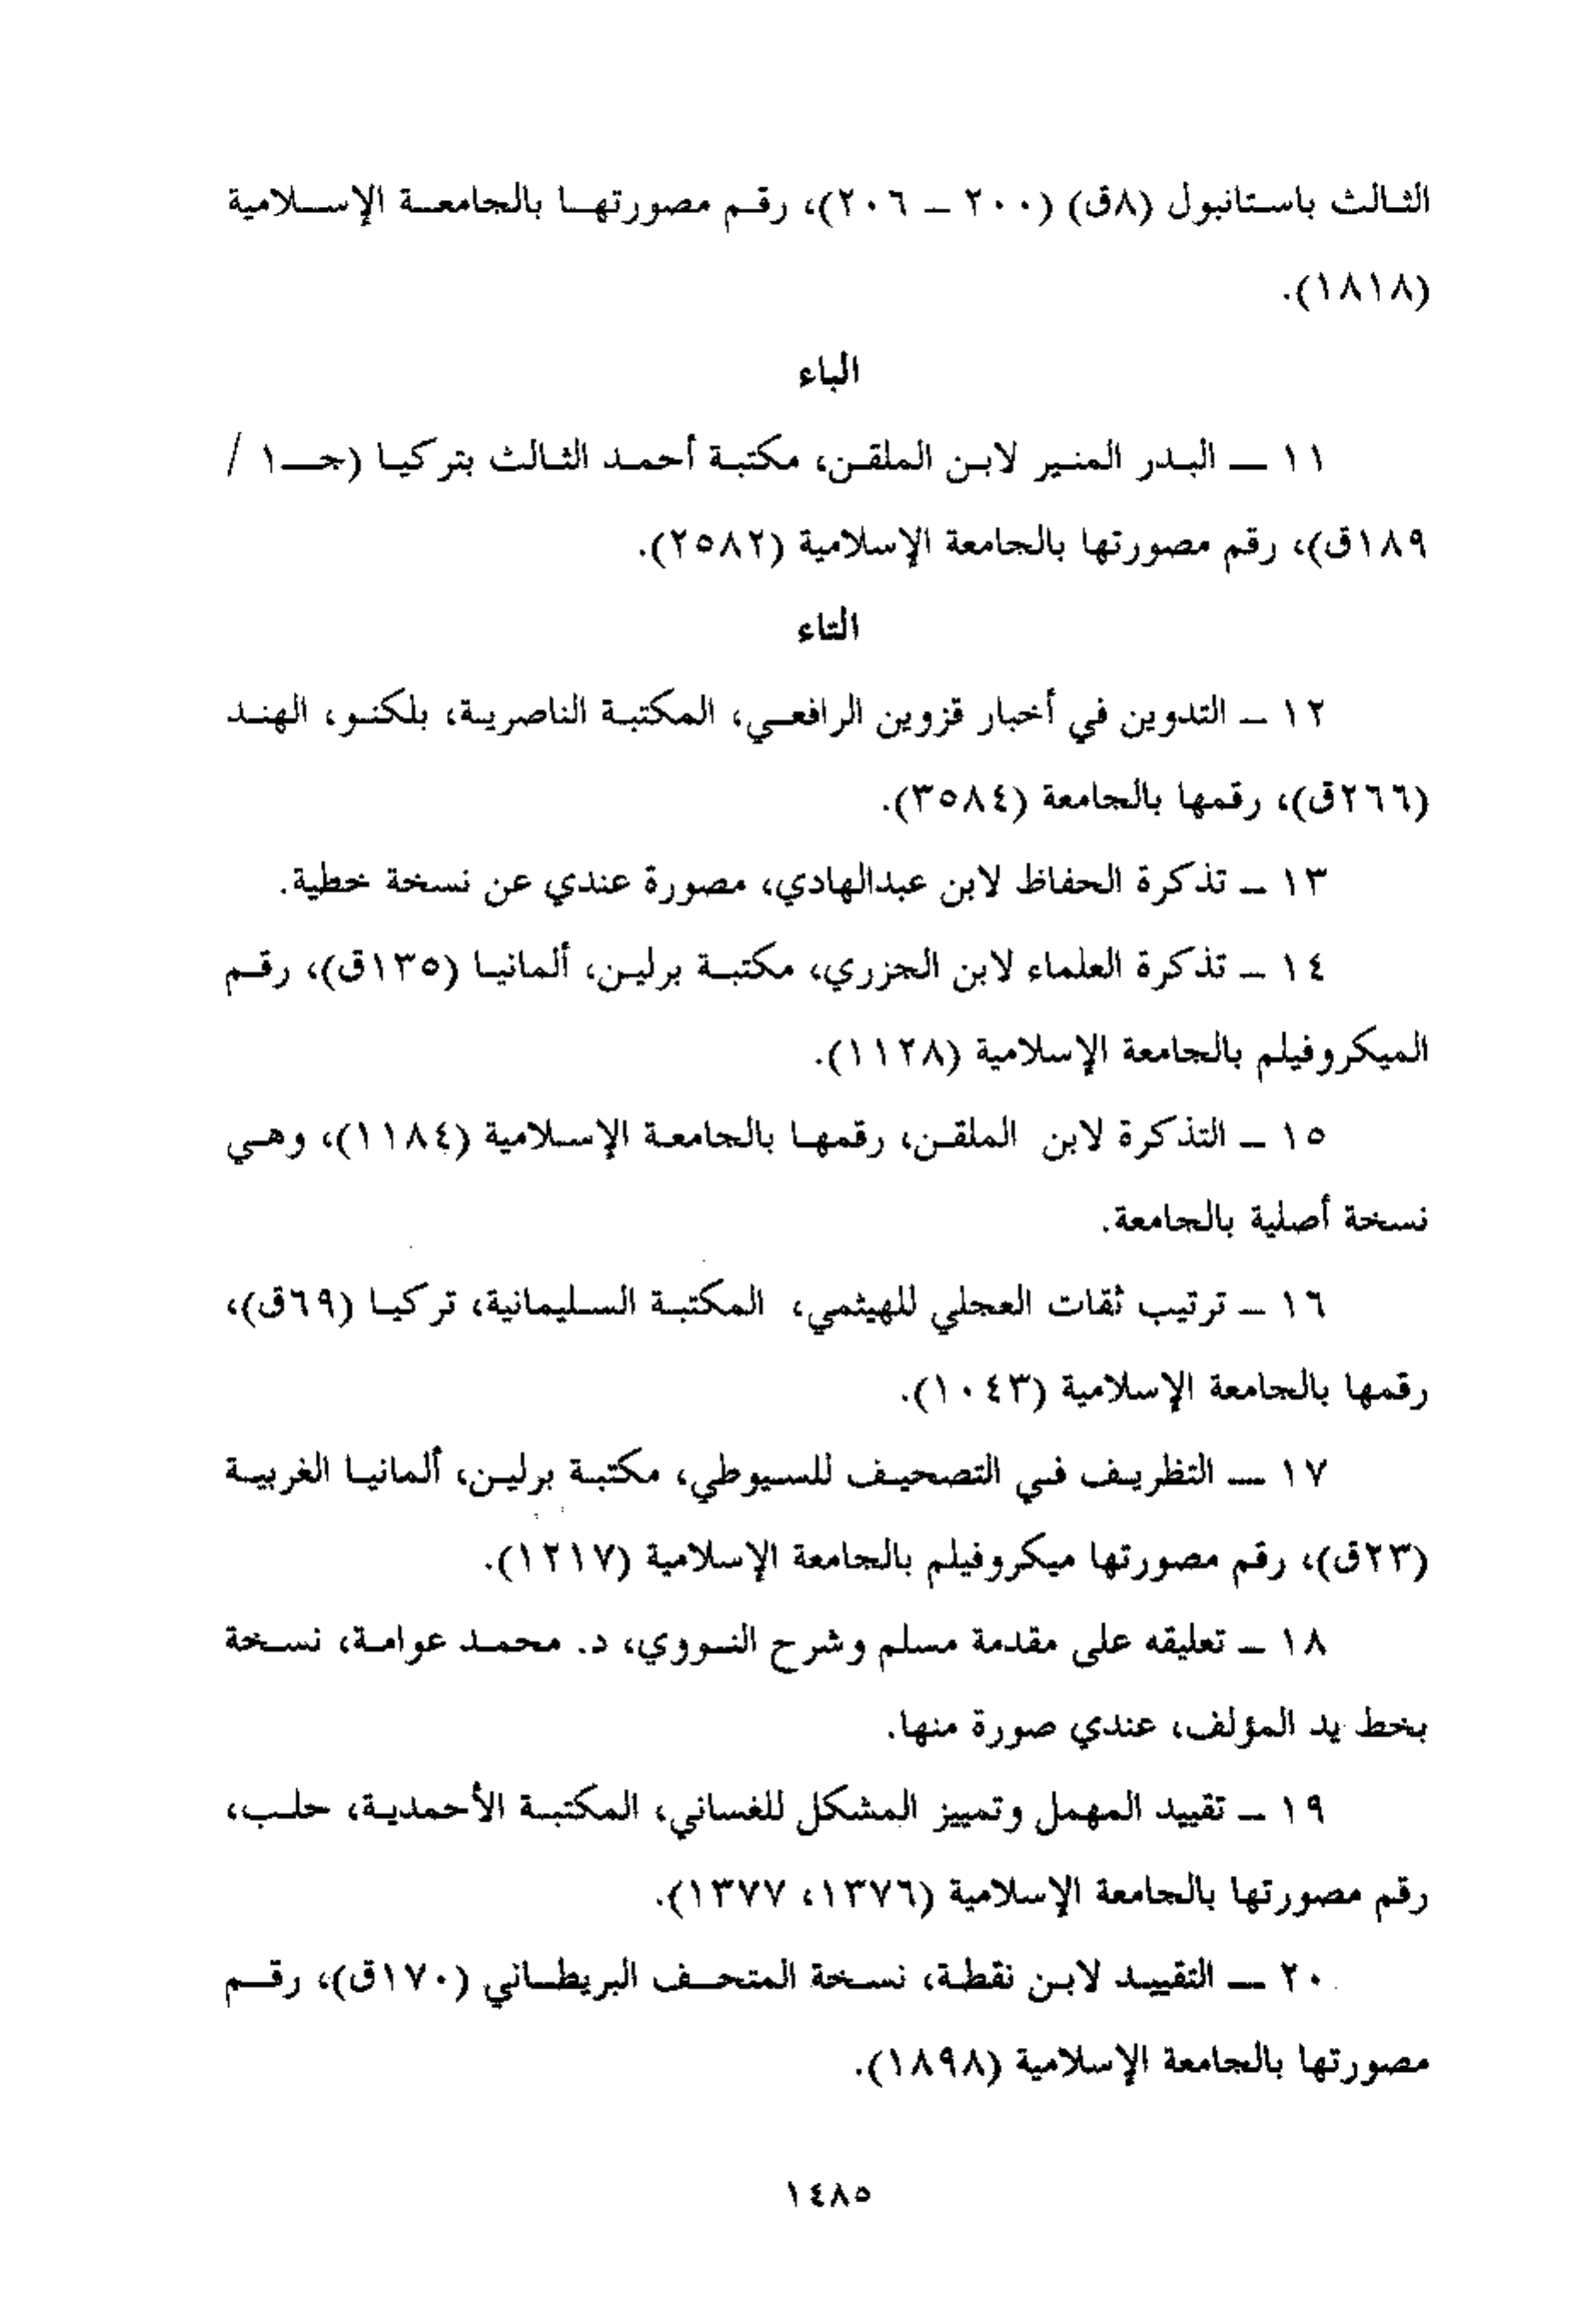 الثالث باستانبول (٨ق) (٢٠٠ – ٢٠٦)، رقم مصورتها بالجامعة الإسلامية
(١٨١٨).
الباء
١١ – البدر المنير لابن الملقن، مكتبة أحمد الثالث بتركيا (جـ١ /
١٨٩ق)، رقم مصورتها بالجامعة الإسلامية (٢٥٨٢).
التاء
١٢ – التدوين في أخبار قزوين الرافعي، المكتبة الناصرية، بلكنو، الهند
(٢٦٦ق)، رقمها بالجامعة (٣٥٨٤).
١٣ – تذكرة الحفاظ لابن عبدالهادي، مصورة عندي عن نسخة خطية.
١٤ – تذكرة العلماء لابن الجزري، مكتبة برلين، ألمانيا (١٣٥ق)، رقم
الميكروفيلم بالجامعة الإسلامية (١١٢٨).
١٥ – التذكرة لابن الملقن، رقمها بالجامعة الإسلامية (١١٨٤)، وهي
نسخة أصلية بالجامعة.
١٦ – ترتيب ثقات العجلي للهيثمي، المكتبة السليمانية، تركيا (٦٩ق)،
رقمها بالجامعة الإسلامية (١٠٤٣).
١٧ – التظريف في التصحيف للسيوطي، مكتبة برلين، ألمانيا الغربية
(٢٣ق)، رقم مصورتها ميكروفيلم بالجامعة الإسلامية (١٢١٧).
١٨ – تعليقه على مقدمة مسلم وشرح النووي، د. محمد عوامة، نسخة
بخط يد المؤلف، عندي صورة منها.
١٩ – تقييد المهمل وتمييز المشكل للغساني، المكتبة الأحمدية، حلب،
رقم مصورتها بالجامعة الإسلامية (١٣٧٦، ١٣٧٧).
٢٠ – التقييد لابن نقطة، نسخة المتحف البريطاني (١٧٠ق)، رقم
مصورتها بالجامعة الإسلامية (١٨٩٨).
١٤٨٥